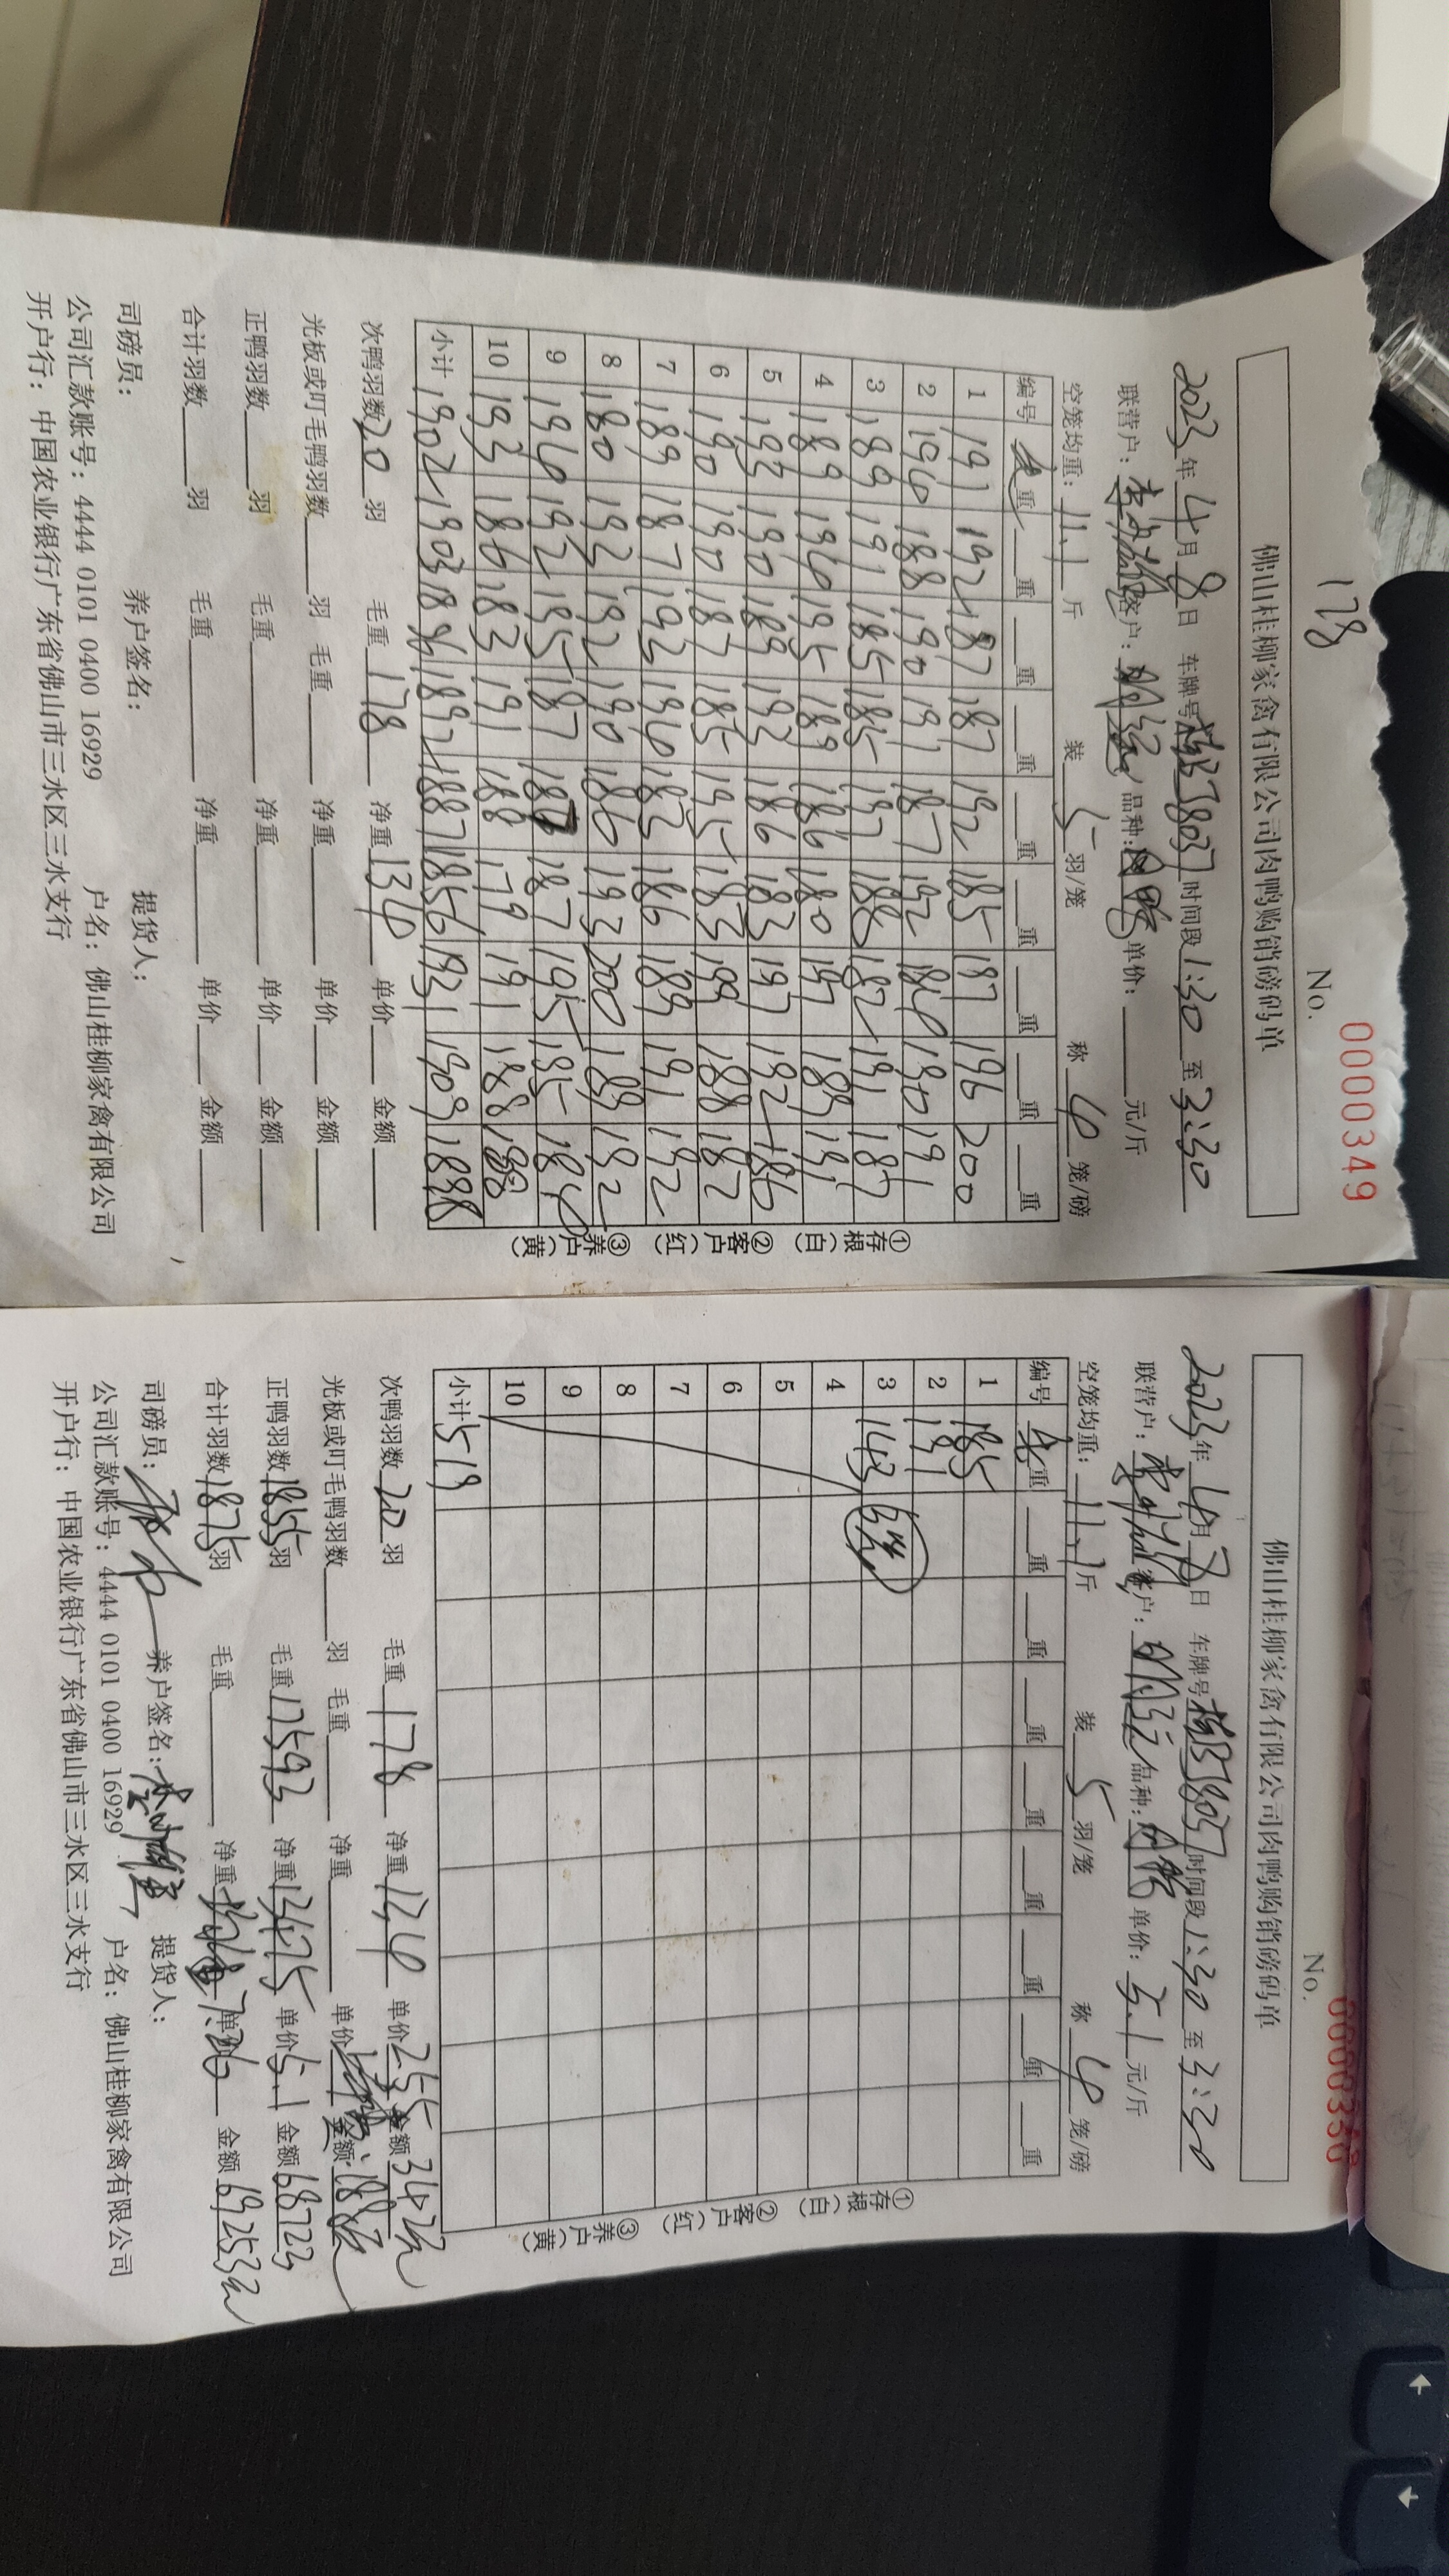 178
No. 0000349
佛山桂柳家禽有限公司肉鸭购销磅码单
2023年4月8日 车牌号 时间段1:30至3:30
联营户: 客户: 品种: 单价: 元/斤
空笼均重:11.1斤 装5羽/笼 称4笼/磅
编号 毛重 重 重 重 重 重 重 重 重
1 191 192 187 187 192 185 197 196 200
2 194 188 190 191 187 192 184 190 191
3 189 191 185 185 197 188 182 191 187
4 189 194 195 189 186 180 197 189 191
5 193 190 189 192 186 183 197 192 186
6 190 190 187 185 195 183 199 188 187
7 189 187 192 194 183 186 189 191 192
8 180 192 192 190 186 193 200 189 192
9 194 192 185 187 187 187 195 185 184
10 193 186 183 191 188 179 191 188 188
小计 1902 1903 1891 1887 1856 1931 1909 1898
①存根(白) ②客户(红) ③养户(黄)
次鸭羽数20羽 毛重178 净重134 单价 金额
光板或叮毛鸭羽数 羽 毛重 净重 单价 金额
正鸭羽数 羽 毛重 净重 单价 金额
合计羽数 羽 毛重 净重 单价 金额
司磅员: 养户签名: 提货人:
公司汇款账号:4444 0101 0400 16929 户名:佛山桂柳家禽有限公司
开户行:中国农业银行广东省佛山市三水区三水支行
No.
佛山桂柳家禽有限公司肉鸭购销磅码单
2023年4月8日 车牌号 时间段1:30至3:30
联营户: 客户: 品种: 单价:5.1元/斤
空笼均重:11.1斤 装5羽/笼 称4笼/磅
编号 毛重 重 重 重 重 重 重 重 重
1 185
2 191
3 143 3笼
4
5
6
7
8
9
10
小计 519
①存根(白) ②客户(红) ③养户(黄)
次鸭羽数20羽 毛重178 净重134 单价2.55 金额342元
光板或叮毛鸭羽数 羽 毛重 净重 单价 金额
正鸭羽数1855羽 毛重17593 净重13475 单价5.1 金额68723
合计羽数1875羽 毛重 净重 单价 金额69253元
司磅员: 养户签名: 提货人:
公司汇款账号:4444 0101 0400 16929 户名:佛山桂柳家禽有限公司
开户行:中国农业银行广东省佛山市三水区三水支行